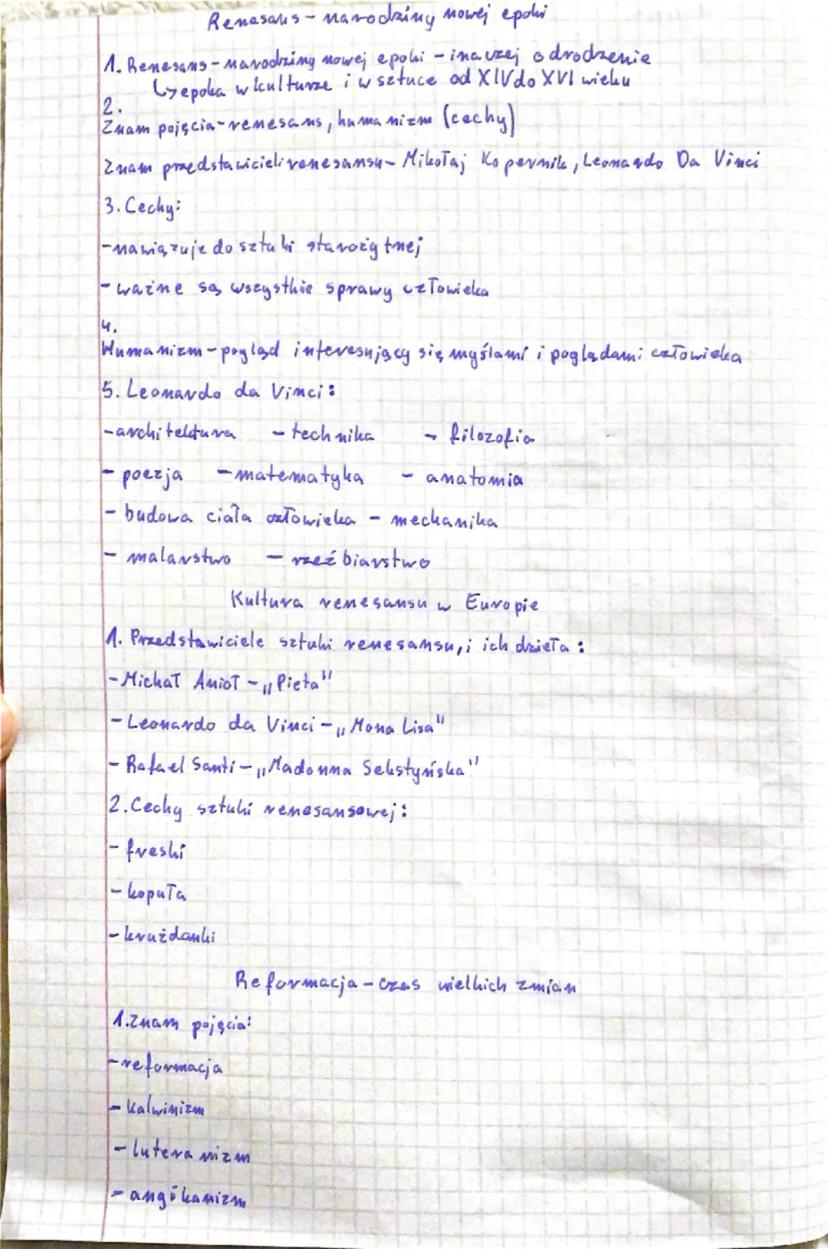 Renesans – narodziny nowej epoki
1. Renesans – narodziny nowej epoki – inaczej odrodzenie
↳ epoka w kulturze i w sztuce od XIV do XVI wieku
2.
Znam pojęcia – renesans, humanizm (cechy)
Znam przedstawicieli renesansu – Mikołaj Kopernik, Leonardo Da Vinci
3. Cechy:
- nawiązuje do sztuki starożytnej
- ważne są wszystkie sprawy człowieka
4.
Humanizm – pogląd interesujący się myślami i poglądami człowieka
5. Leonardo da Vinci:
- architektura - technika - filozofia
- poezja - matematyka - anatomia
- budowa ciała człowieka - mechanika
- malarstwo - rzeźbiarstwo
Kultura renesansu w Europie
1. Przedstawiciele sztuki renesansu, i ich dzieła:
- Michał Anioł – „Pieta"
- Leonardo da Vinci – „Mona Lisa"
- Rafael Santi – „Madonna Sekstyńska"
2. Cechy sztuki renesansowej:
- freski
- kopuła
- krużdanki
Reformacja – czas wielkich zmian
1. Znam pojęcia:
- reformacja
- kalwinizm
- luteranizm
- angikanizm